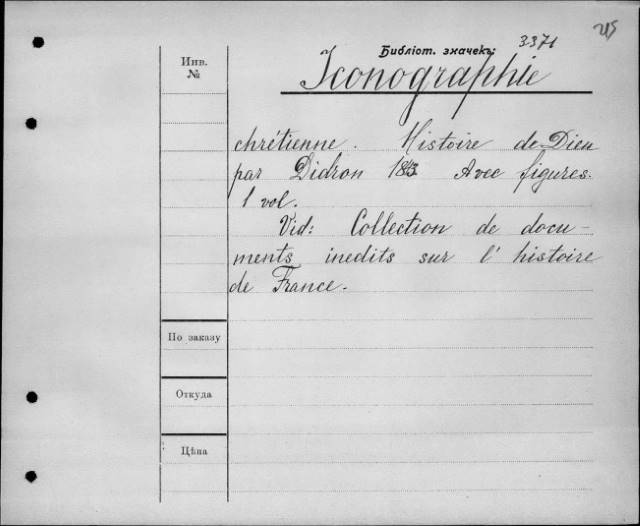 215
Библіот. значекъ: 3371
Инв.
№
Iconographie
chrétienne. Histoire de Dieu
par Didron 1843 Avec figures.
1 vol.
Vid: Collection de docu-
ments inedits sur l'histoire
de France.
По заказу
Откуда
Цѣна